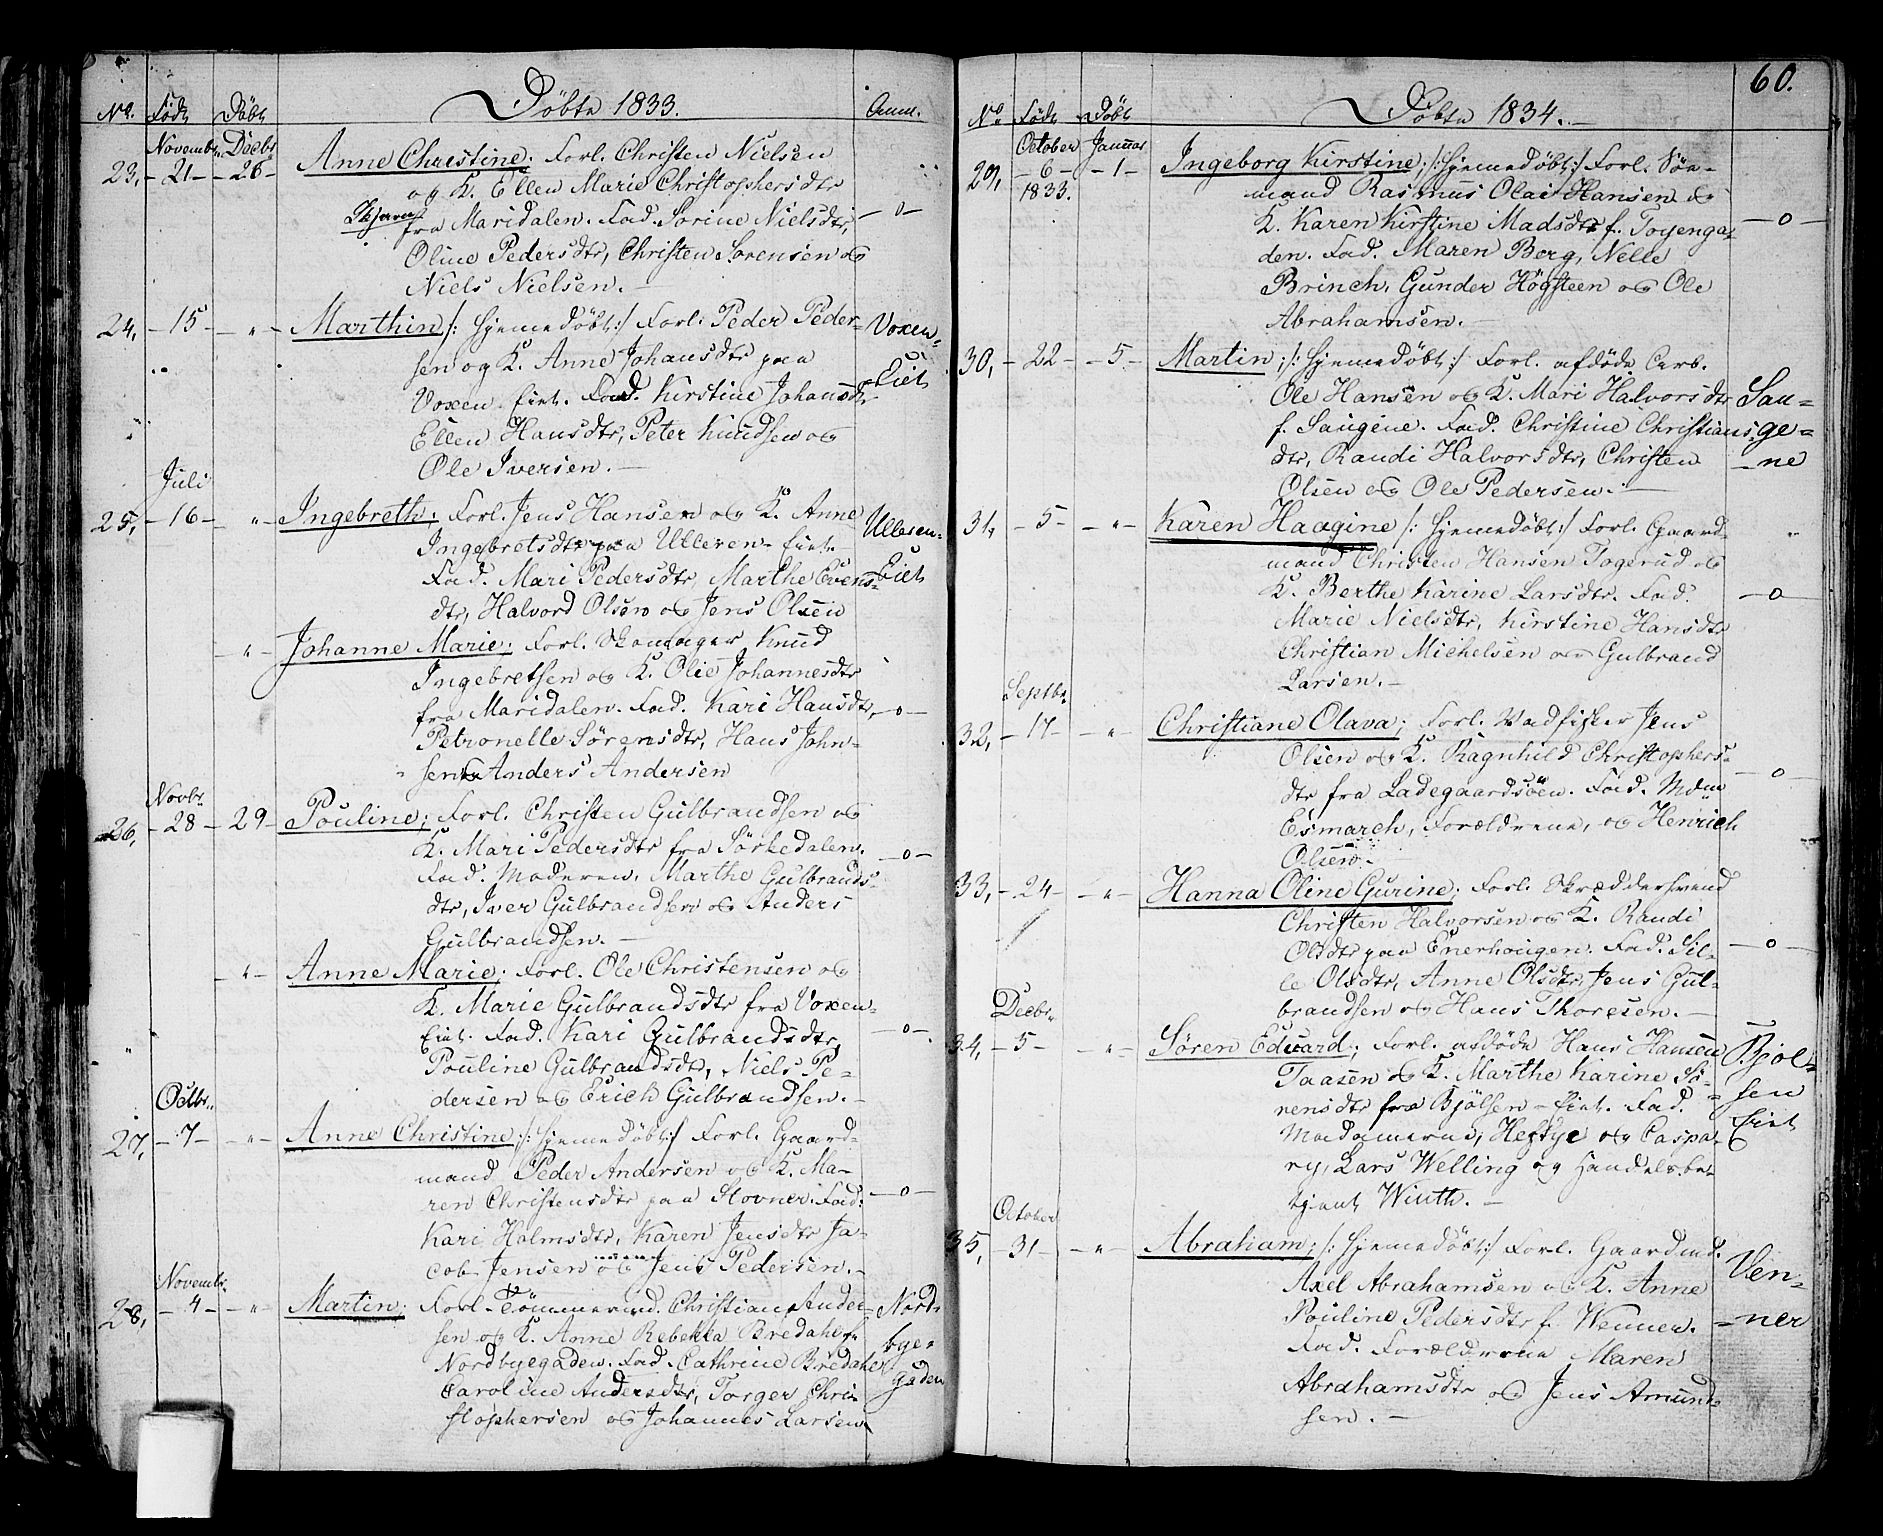 Døbte 1833.
No. Födt Döbt Anm.
Novembr. Decbr.
23, -21- -26- Anne Christine; Forl. Christen Nielsen
og K. Ellen Marie Christophersdtr
Skjerven fra Maridalen. Fad. Sorine Nielsdtr, -o-
Oline Pedersdtr, Christen Sorensen og
Niels Nielsen.-
24, -15- -"- Marthin /: hjemmedøbt:/ Forl. Peder Peder- Voxen-
sen og K. Anne Johansdtr paa Eiet
Voxen-Eiet. Fad. Kirstine Johansdtr
Ellen Hansdtr, Peter Knudsen og
Ole Iversen.-
Juli
25, -16- "- Ingebreth; Forl. Jens Hansen og K. Anne Ulleren-
Ingebretsdtr paa Ulleren-Eiet.- Eiet
Fad. Mari Pedersdtr, Marthe Evens-
dtr, Halvord Olsen og Jens Olsen
-"- Johanne Marie; Forl. Skomager Knud
Ingebretsen og K. Olie Johannesdtr
fra Maridalen. Fad. Kari Hansdtr, -o-
Petronelle Sørensdtr, Hans John-
sen og Anders Andersen
Novbr.
26, -28- 29- Pouline; Forl. Christen Gulbrandsen og
K. Mari Pedersdtr fra Sørkedalen. -o-
Fad. Moderen, Marthe Gulbrands-
dtr, Iver Gulbrandsen og Anders
Gulbrandsen.-
-"- Anne Marie; Forl. Ole Christensen og
K. Marie Gulbrandsdtr fra Voxen-
Eiet. Fad. Kari Gulbrandsdtr, -o-
Pouline Gulbrandsdtr, Niels Pe-
dersen og Erich Gulbrandsen.-
Octbr.
27, -7- -"- Anne Christine; /: hjemmedøbt:/ Forl. Gaard-
mand Peder Andersen og K. Ma-
ren Christensdtr paa Stovner. Fad. -o-
Kari Holmsdtr, Karen Jensdtr Ja-
cob Jensen og Jens Pedersen.-
Novembr.
28, -4- -"- Martin; Forl. Tömmermd. Christian Ander- Nord-
sen og K. Anne Rebekka Bredahl f. bye-
Nordbyegaden. Fad. Cathrine Bredahl gaden
Caroline Andersdtr, Torger Chri-
stophersen og Johannes Larsen
60.
Döbte 1834.
No. Födt Döbt
October Januar
29, -6- -1- Ingeborg Kirstine; /: hjemmedøbt:/ Forl. Söe-
1833. mand Rasmus Olai Hansen og
K. Karen Kirstine Madsdtr f. Toyenga- -o-
den. Fad. Maren Berg, Nelle
Brinch, Gunder Högsteen og Ole
Abrahamsen.-
30, -22- -5- Martin; /: hjemmedøbt:/ Forl. afdöde Arb.
Ole Hansen og K. Mari Halvorsdtr Sau-
f. Saugene. Fad. Christine Christians- ge-
dtr, Randi Halvorsdtr, Christen -ne
Olsen og Ole Pedersen.-
31, -5- -"- Karen Haagine /: hjemmedøbt:/ Forl. Gaard-
mand Christen Hansen Togerud og
K. Berthe Karine Larsdtr. Fad. -o-
Marie Nielsdtr, Kirstine Hansdtr
Christian Michelsen og Gulbrand
Larsen.-
Septbr.
32, -17- -"- Christiane Olava; Forl. Vadfisker Jens
Olsen og K. Ragnhild Christophers-
dtr fra Ladegaardsöen. Fad. Mdm -o-
Esmarch, Forældrene, og Henrich
Olsen.-
33, -24- -"- Hanna Oline Gurine; Forl. Skræddersvend
Christen Halvorsen og K. Randi
Olsdtr paa Enerhougen. Fad. Sil- -o-
le Olsdtr, Anne Olsdtr, Jens Gul-
brandsen og Hans Thoresen.-
Decbr.
34, -5- -"- Søren Edvard; Forl. afdøde Hans Hansen Bjol-
Taasen og K. Marthe Karine Sø- sen
rensdtr fra Bjølsen-Eiet. Fad. Eiet
Madamerne, Heftye og Caspa-
ry, Lars Welling og Handelsbe-
tjent Winth.-
October
35, -31- -"- Abraham; /: hjemmedøbt:/ Forl. Gaardmd.
Axel Abrahamsen og K. Anne Ven-
Pouline Pedersdtr f. Wenner. -ner
Fad. Forældrene Maren
Abrahamsdtr og Jens Amund-
sen.-